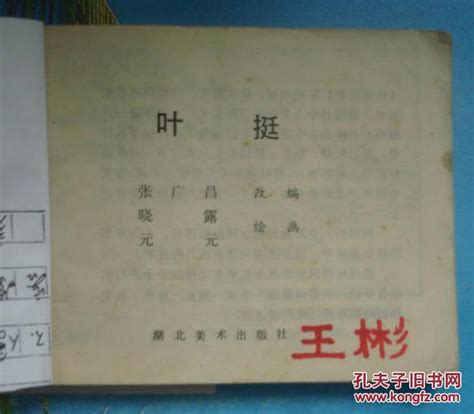 叶 挺
张广昌 改编
晓露
元元 绘画
湖北美术出版社
王彬
孔夫子旧书网
www.kongfz.com